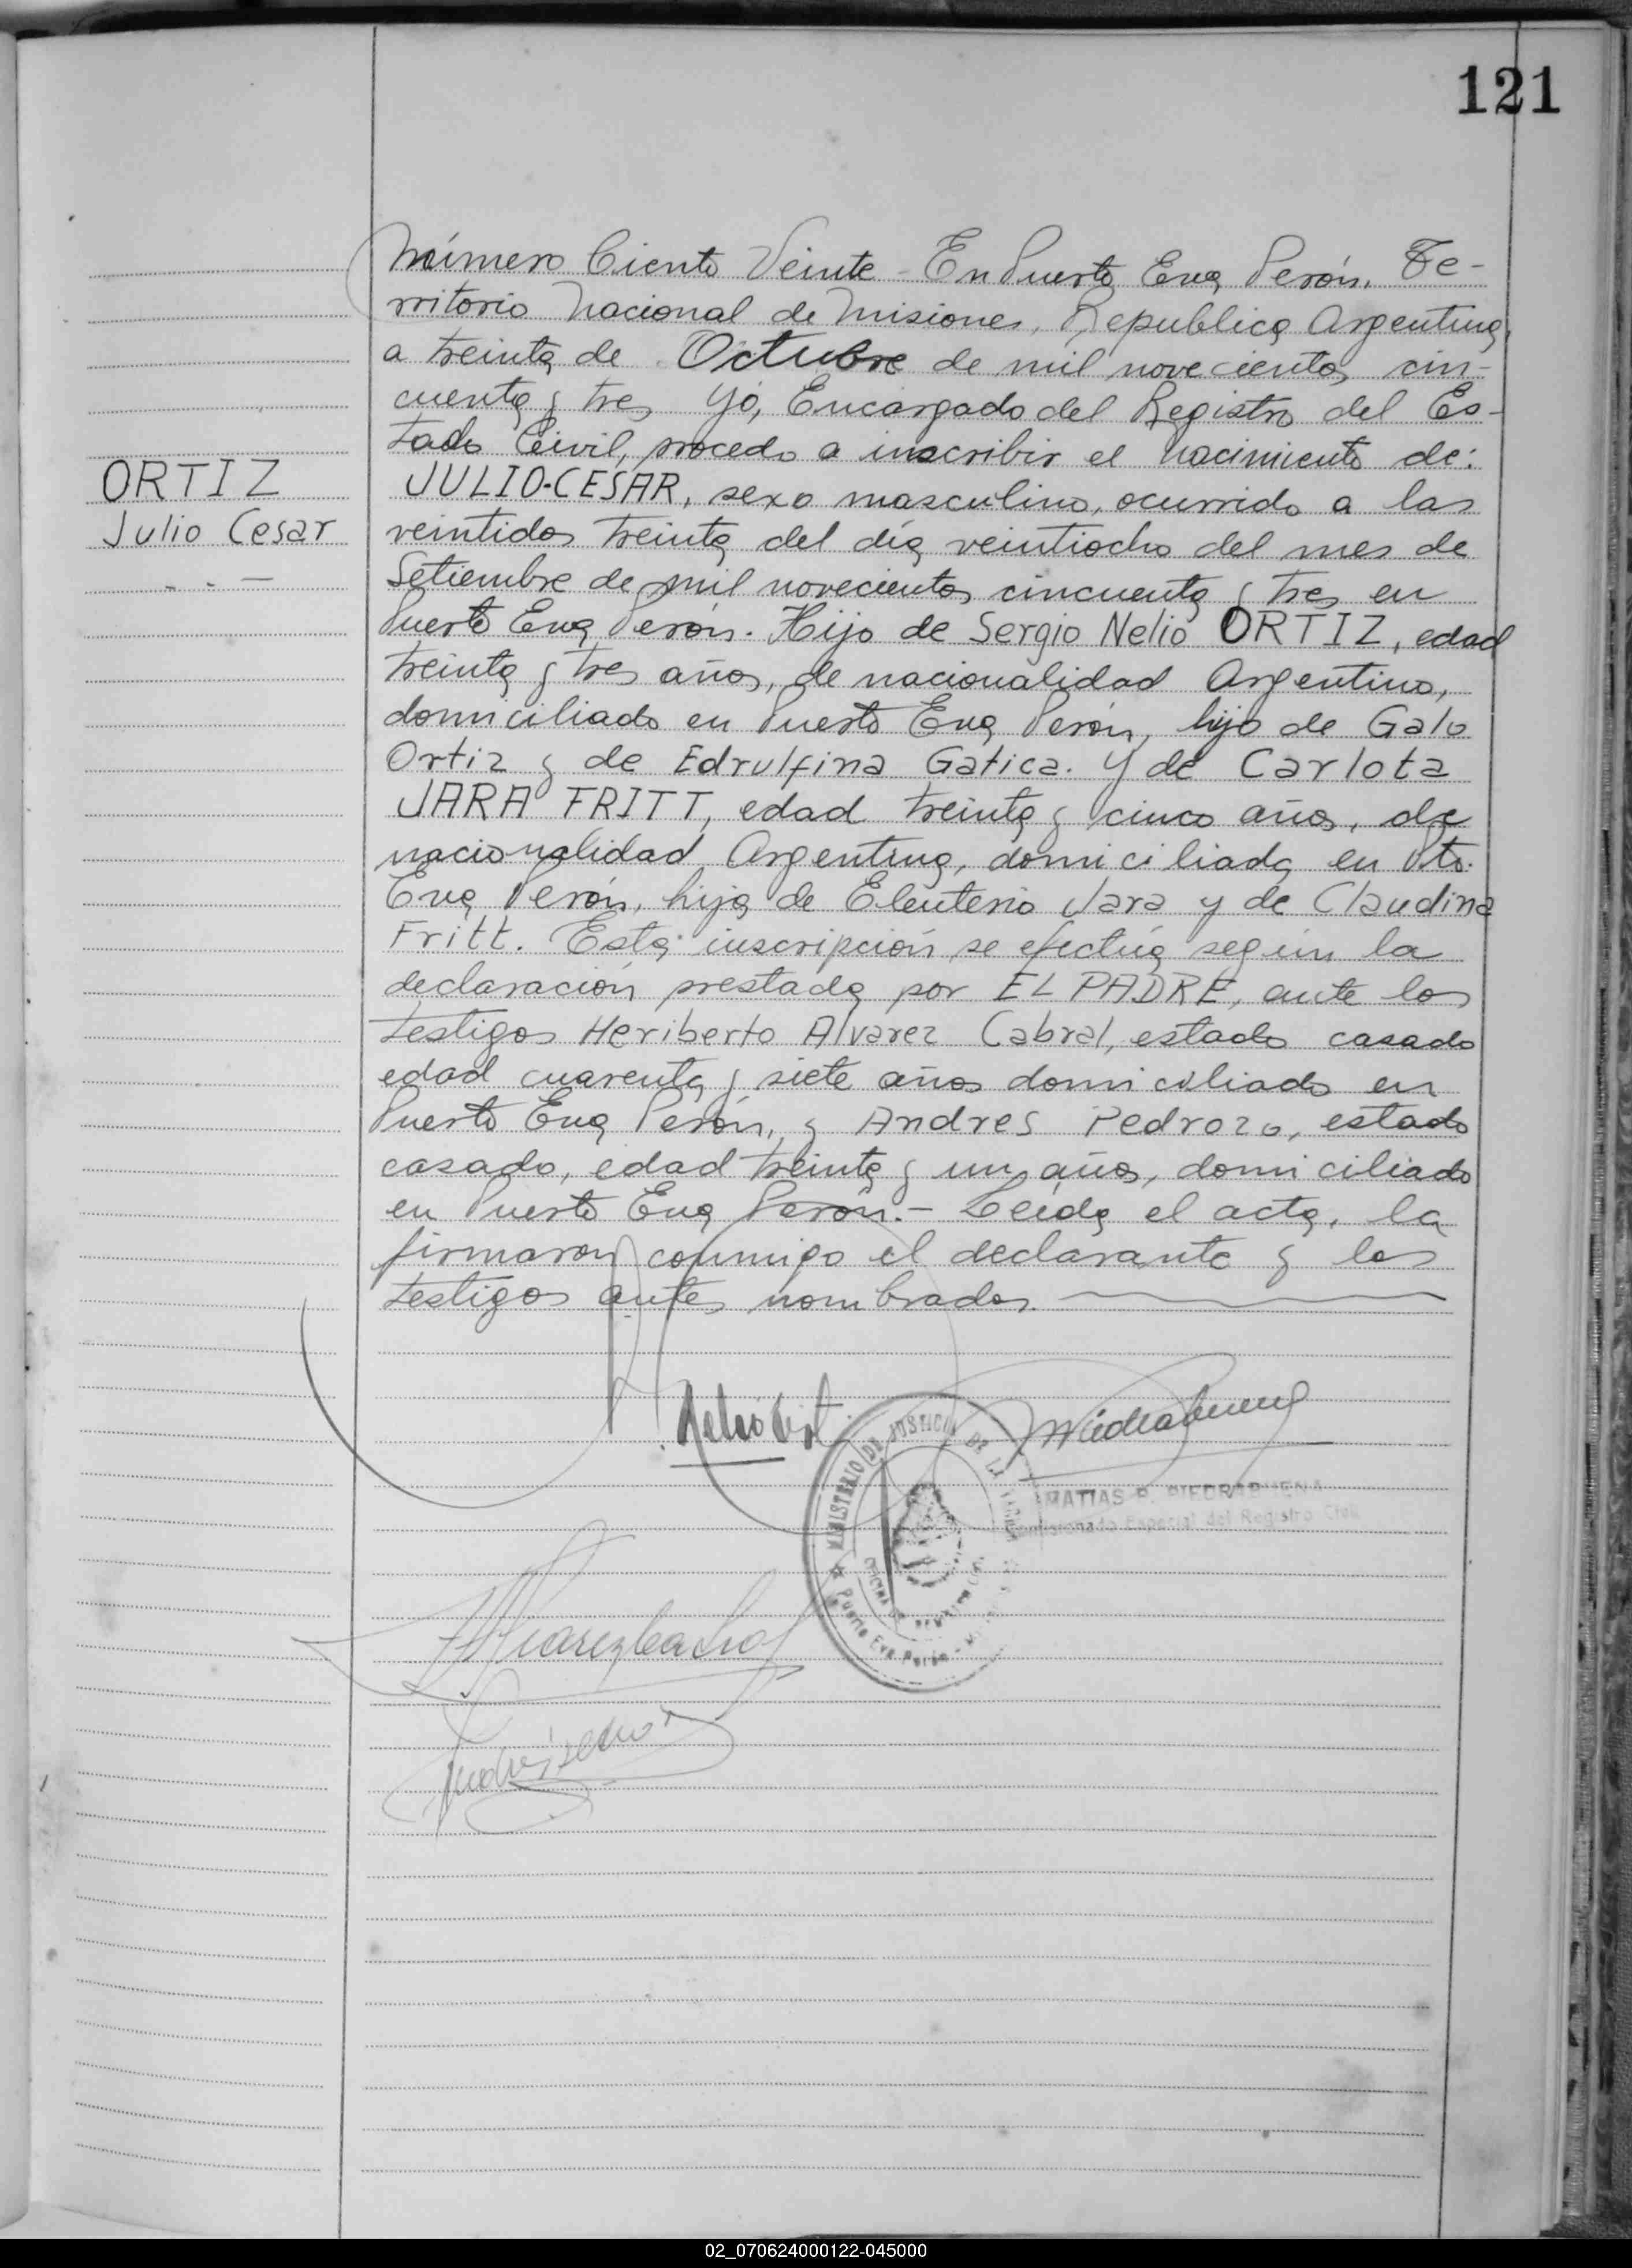 121
Número Ciento Veinte - En Puerto Eva Perón, Te-
rritorio Nacional de Misiones, Republica Argentina,
a treinta de Octubre de mil novecientos cin-
cuenta y tres Yo, Encargado del Registro del Es-
tado Civil, procedo a inscribir el nacimiento de:
ORTIZ
Julio Cesar
JULIO-CESAR, sexo masculino, ocurrido a las
veintidos treinta del día veintiocho del mes de
Setiembre de mil novecientos cincuenta y tres en
Puerto Eva Perón. Hijo de Sergio Nelio ORTIZ, edad
treinta y tres años, de nacionalidad Argentino,
domiciliado en Puerto Eva Perón, hijo de Galo
Ortiz y de Edrulfina Gatica. Y de Carlota
JARA FRITT, edad treinta y cinco años, de
nacionalidad Argentina, domiciliada en Pto.
Eva Perón, hija de Eleuterio Jara y de Claudina
Fritt. Esta inscripción se efectúa según la
declaración prestada por EL PADRE, ante los
testigos Heriberto Alvarez Cabral, estado casado
edad cuarenta y siete años domiciliado en
Puerto Eva Perón, y Andres Pedrozo, estado
casado, edad treinta y un años, domiciliado
en Puerto Eva Perón.- Leída el acta, la
firmaron conmigo el declarante y los
testigos antes nombrados.
MINISTERIO DE JUSTICIA DE LA
Puerto Eva Perón
MATIAS P. PIEDRABUENA
Comisionado Especial del Registro Civil
02_070624000122-045000